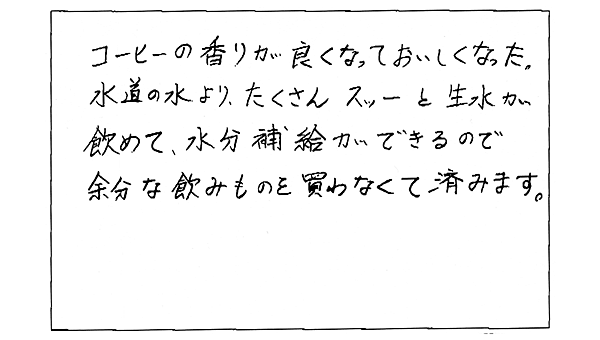 コーヒーの香りが良くなっておいしくなった。
水道の水より、たくさんスッーと生水が
飲めて、水分補給ができるので
余分な飲みものを買わなくて済みます。